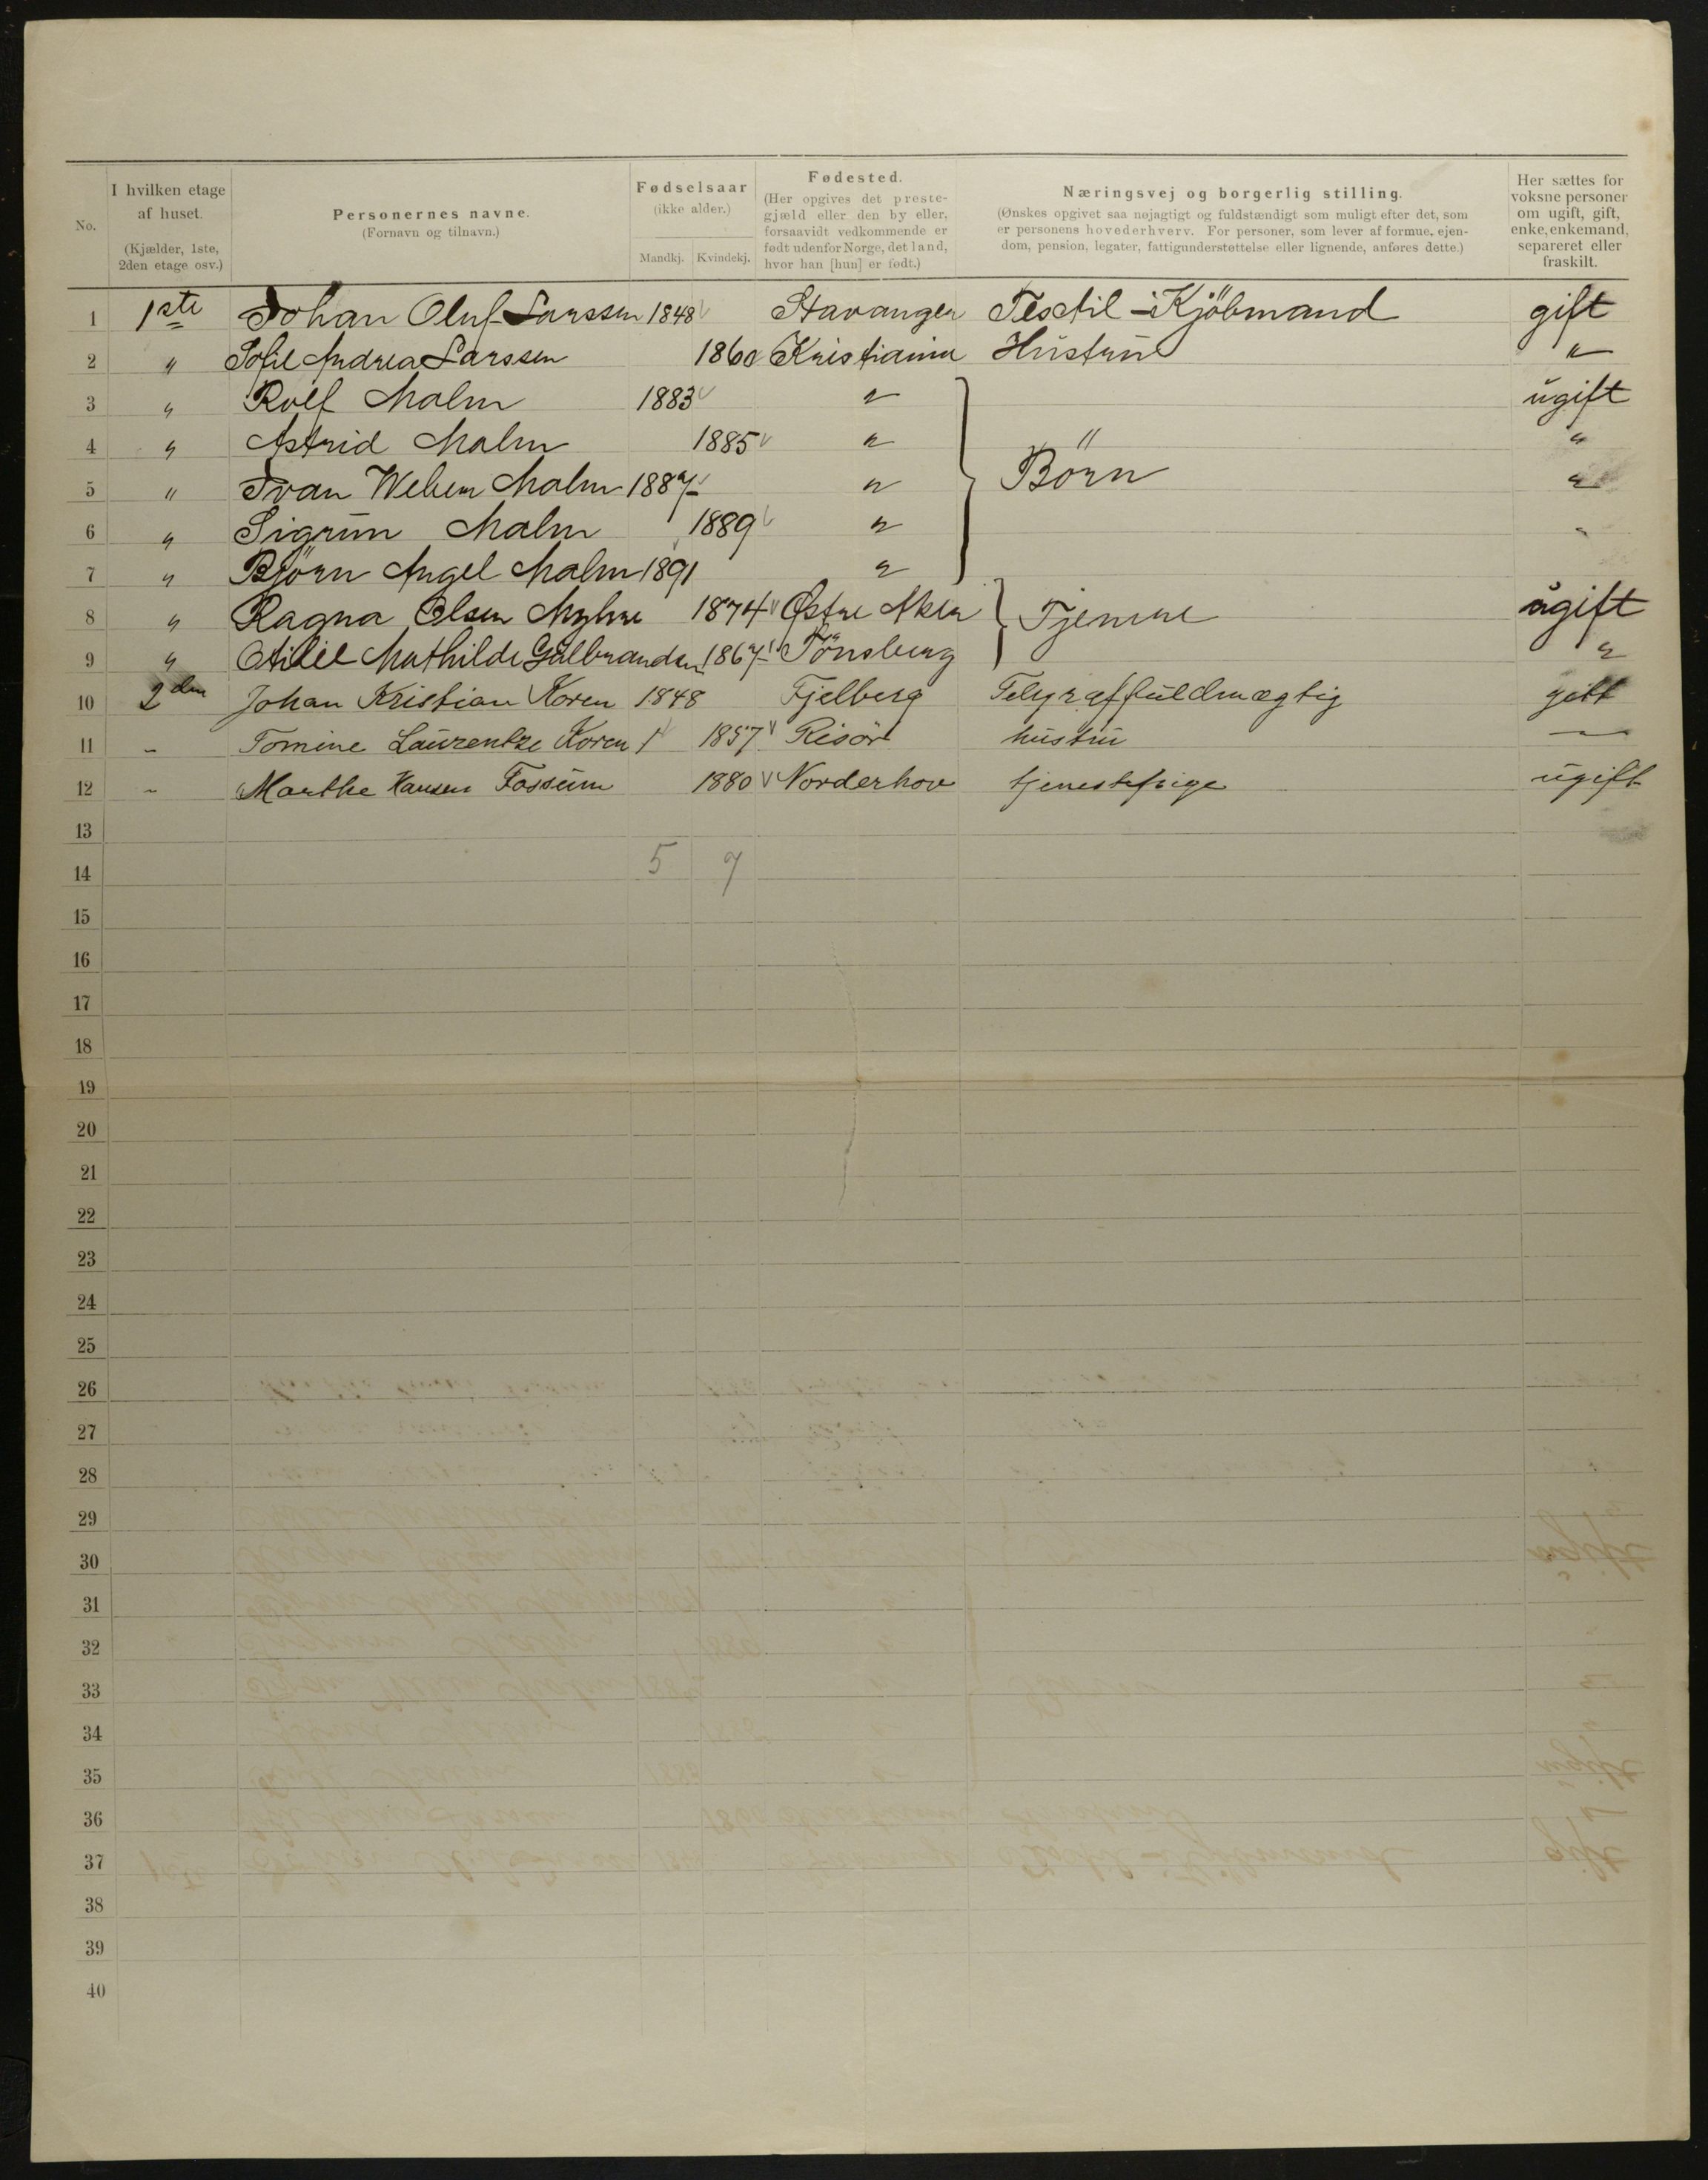 No. | I hvilken etage af huset. (Kjælder, 1ste, 2den etage osv.) | Personernes navne. (Fornavn og tilnavn.) | Fødselsaar (ikke alder.) Mandkj. Kvindekj. | Fødested. (Her opgives det prestegjæld eller den by eller, forsaavidt vedkommende er født udenfor Norge, det land, hvor han [hun] er født.) | Næringsvej og borgerlig stilling. (Ønskes opgivet saa nøjagtigt og fuldstændigt som muligt efter det, som er personens hovederhverv. For personer, som lever af formue, ejendom, pension, legater, fattigunderstøttelse eller lignende, anføres dette.) | Her sættes for voksne personer om ugift, gift, enke, enkemand, separeret eller fraskilt.
1 1ste Johan Oluf Larssen 1848 Stavanger Textil-Kjöbmand gift
2 " Sofie Andrea Larssen 1860 Kristiania Hustru "
3 " Rolf Malm 1883 " ugift
4 " Astrid Malm 1885 " " "
5 " Ivan Weben Malm 1887 " Börn "
6 " Sigrun Malm 1889 " "
7 " Björn Angel Malm 1891 "
8 " Ragna Olsen Myhre 1874 Østre Aker } Tjenere ugift
9 " Mathilde Gulbrandsen 1867 Tönsberg "
10 2den Johan Kristian Koren 1848 Fjelberg Telegraffuldmægtig gift
11 - Tomine Laurentze Koren 1857 Risör hustru —
12 - Marthe Hansen Fossum 1880 Norderhov tjenestepige ugift
13
14 5 7
15
16
17
18
19
20
21
22
23
24
25
26
27
28
29
30
31
32
33
34
35
36
37
38
39
40